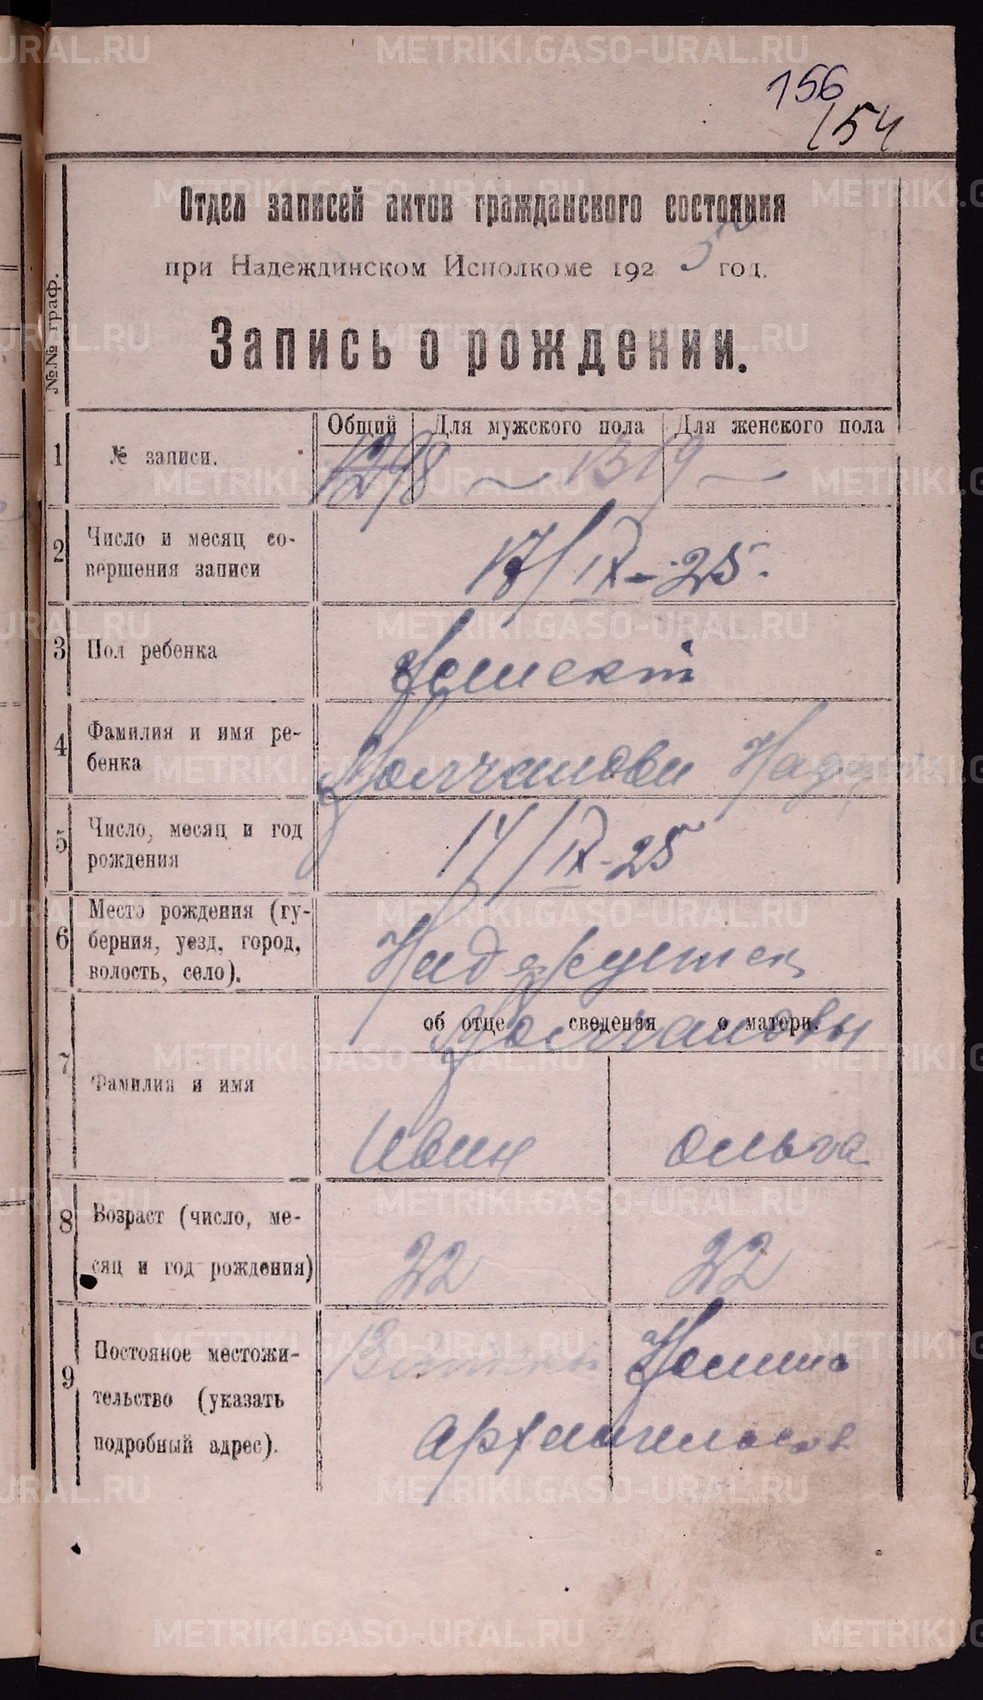 156
154
Отдел записей актов гражданского состояния
при Надеждинском Исполкоме 1925 год.
Запись о рождении.
№.№ граф.
Общий Для мужского пола Для женского пола
1 № записи. 1298 1319
2 Число и месяц со-
вершения записи
17/IX-25.
3 Пол ребенка
4 Фамилия и имя ре-
бенка
Молчанова
5 Число, месяц и год
рождения
14/IX-25
6 Место рождения (гу-
берния, уезд, город,
волость, село).
об отце сведения о матери.
Молчановы
7 Фамилия и имя
Иван Ольга
8 Возраст (число, ме-
сяц и год рождения)
22 22
9 Постояное местожи-
тельство (указать
подробный адрес).
METRIKI.GASO-URAL.RU